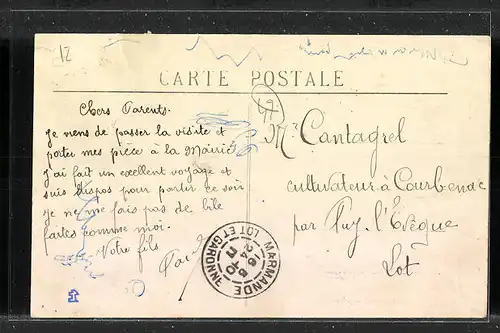 12
CARTE POSTALE
47
Chers Parents.
Je viens de passer la visite et
porter mes pièce à la Mairie
j'ai fait un excellent voyage et
suis dispos pour partir ce soir
je ne me fais pas de bile
faites comme moi.
Votre fils
Mr Cantagrel
cultivateur à Courbenac
par Puy l'Evêque
Lot
MARMANDE
LOT ET GARONNE